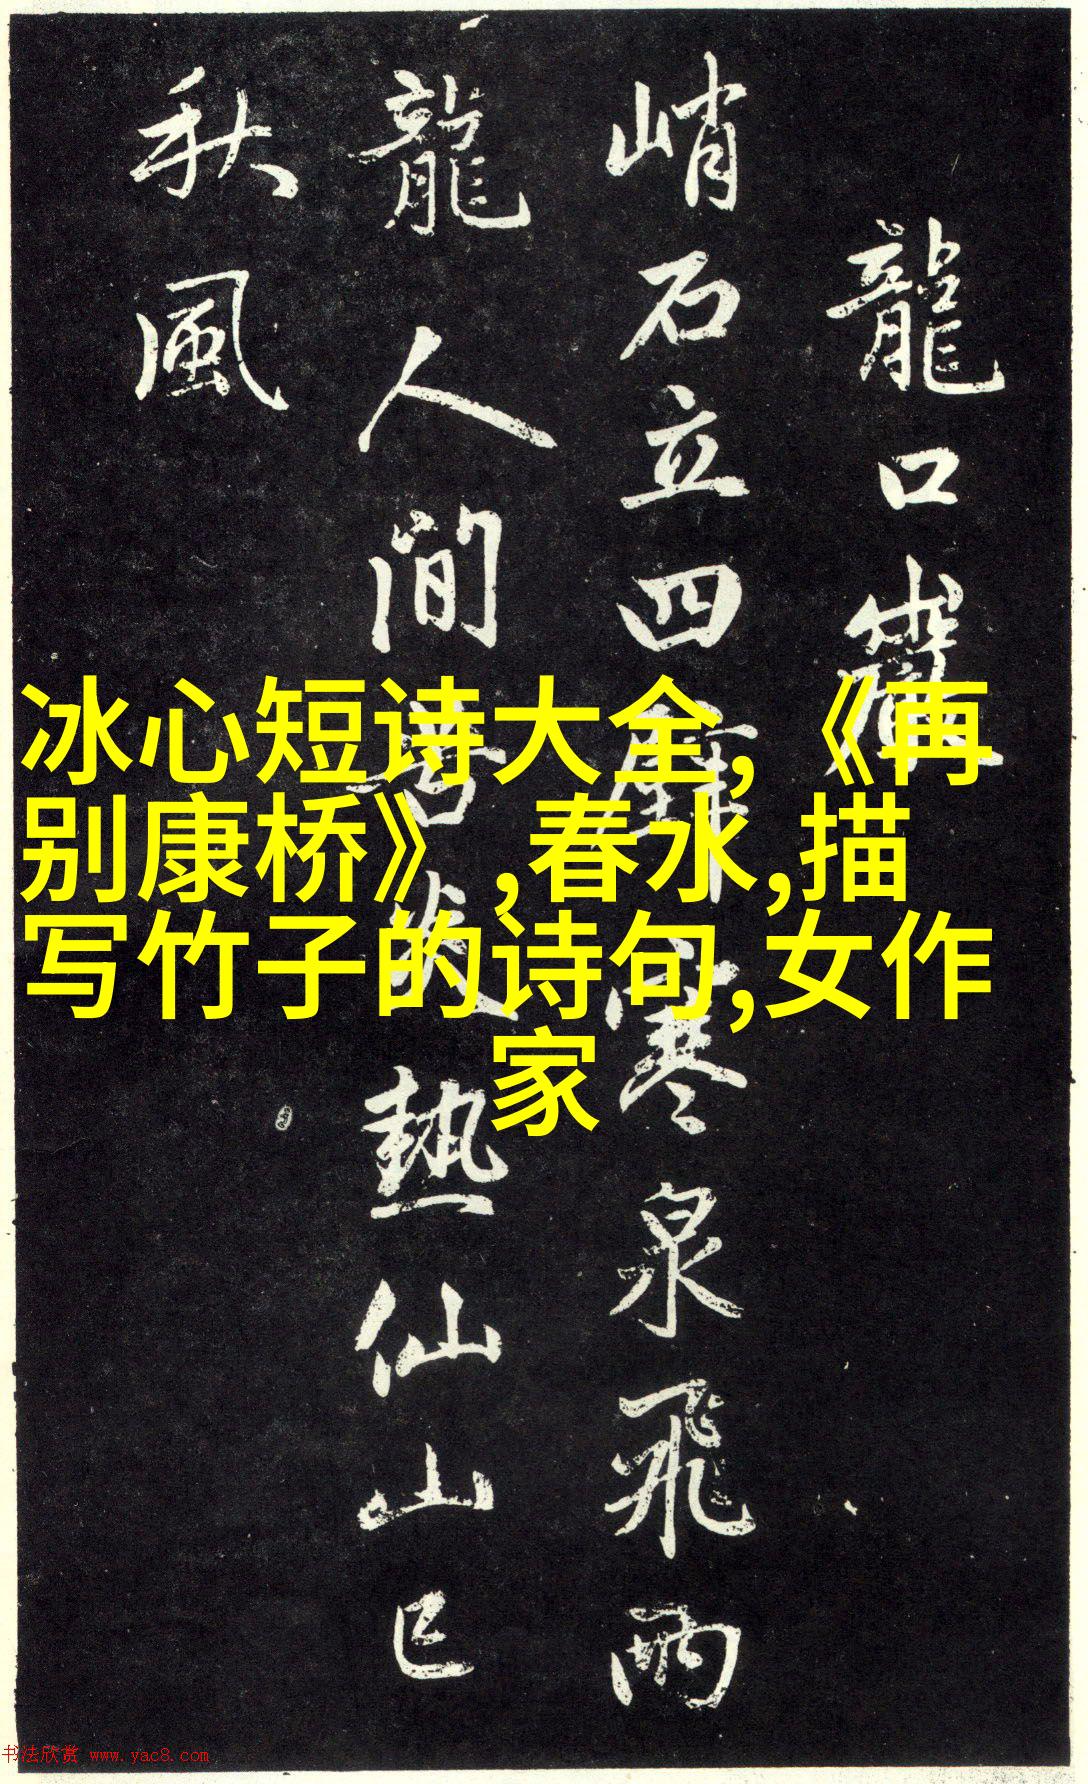 龍口
峭石立四壁寒泉飛兩
龍人間苦炎熱仙山已
秋風
冰心短诗大全,《再
别康桥》,春水,描
写竹子的诗句,女作
家
书法欣赏 www.yac8.com